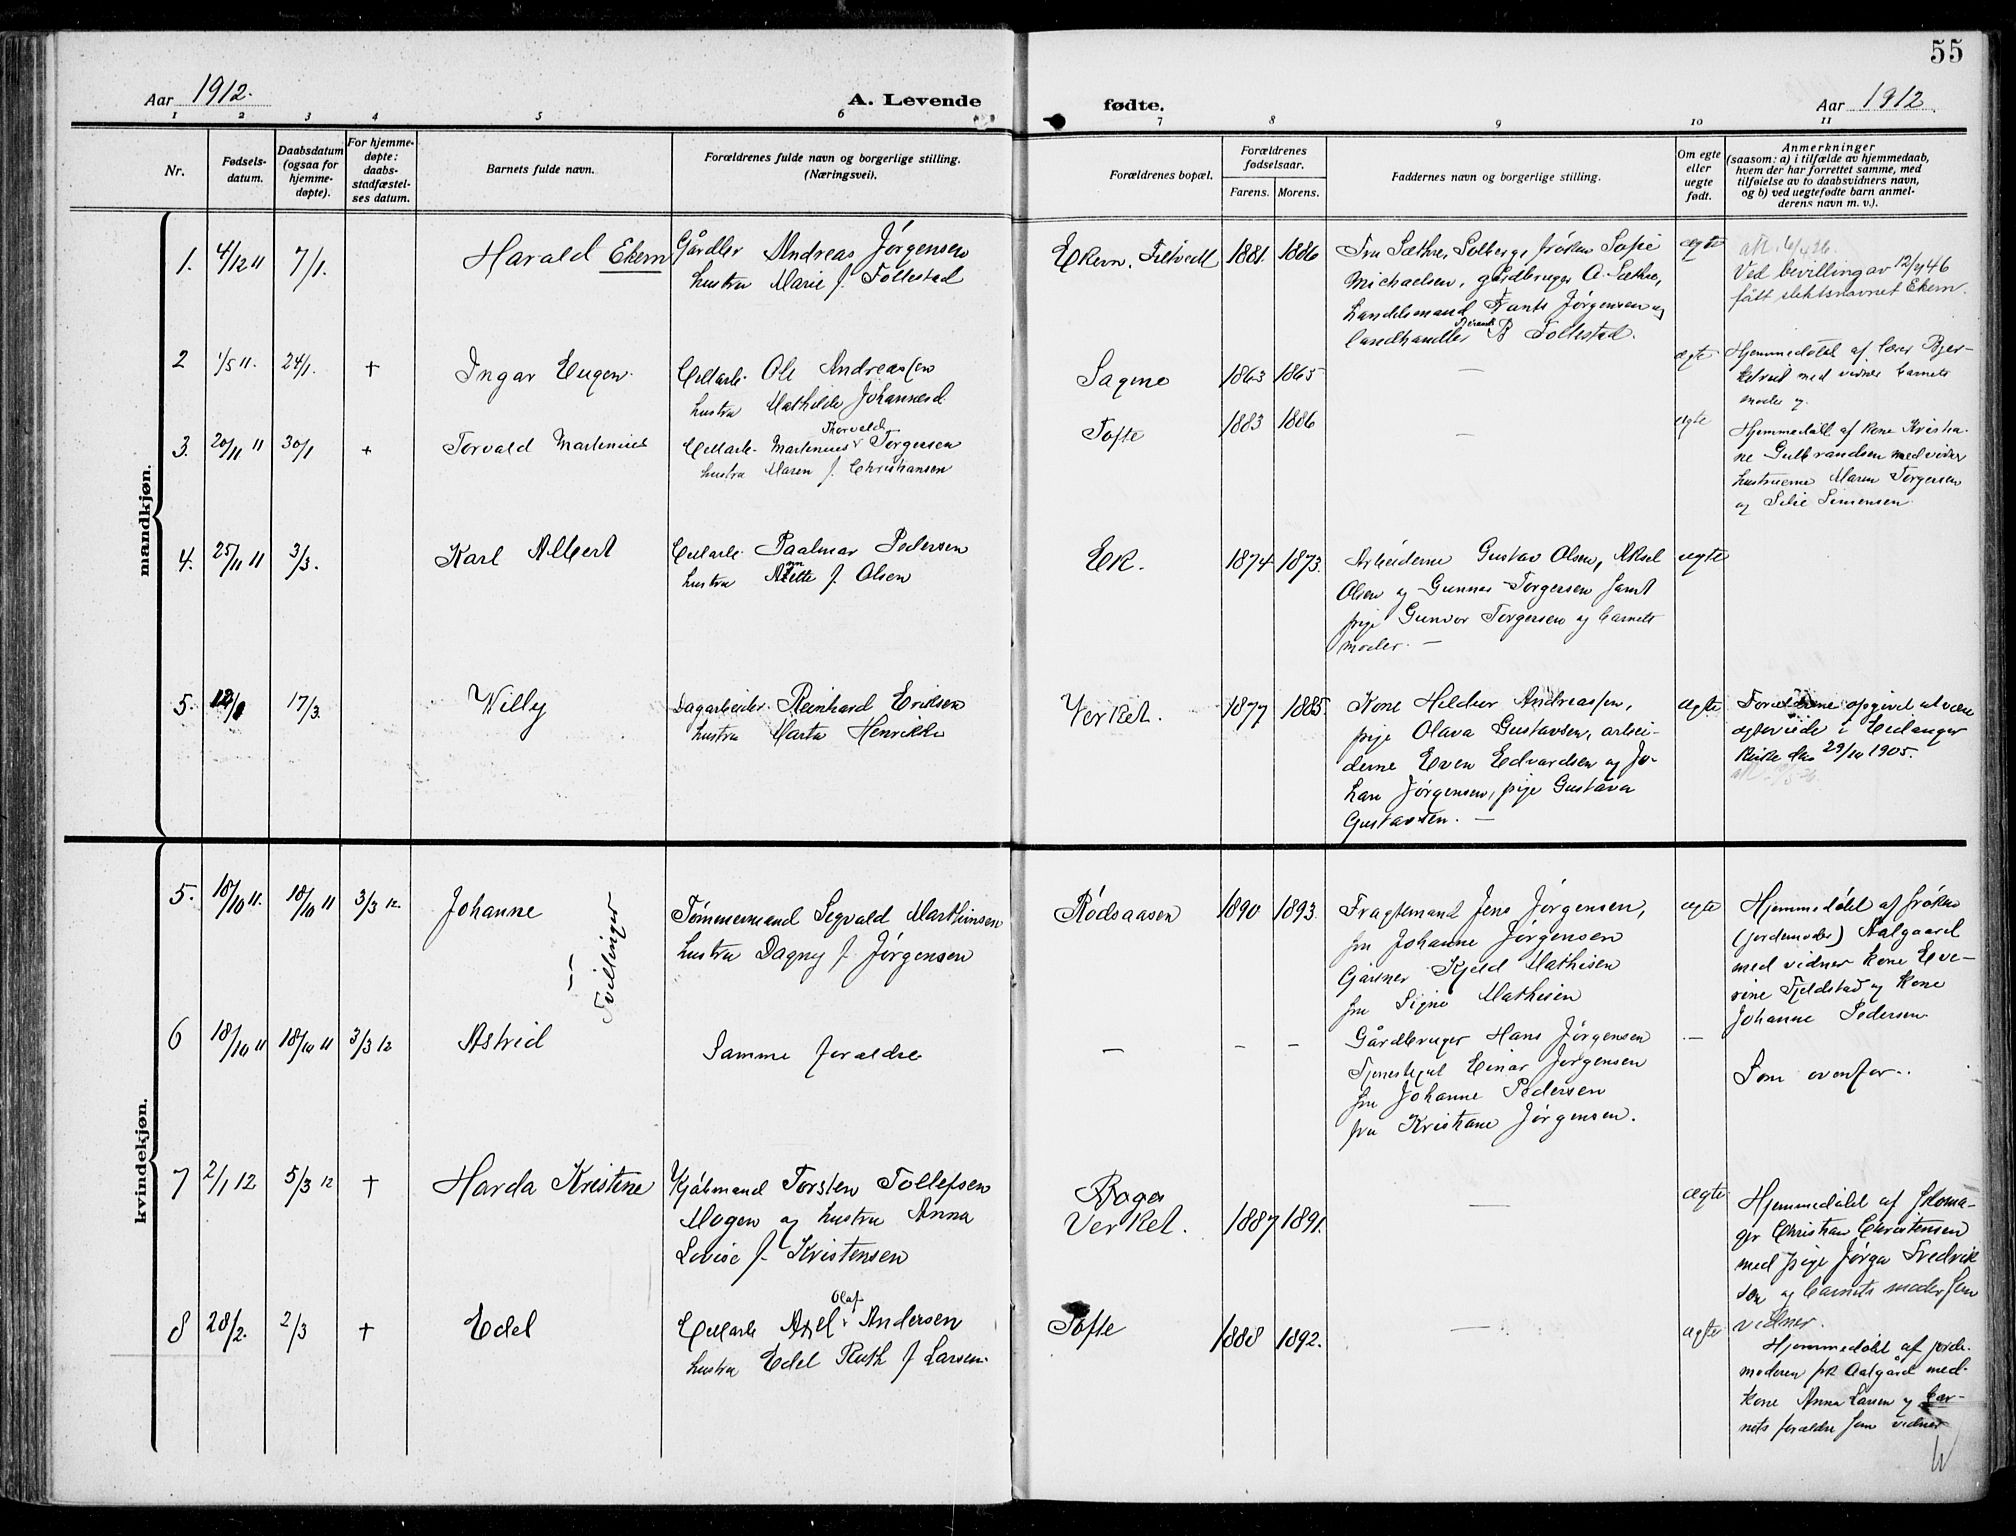 55
Aar 1912.
A. Levende
fødte.
Aar 1912
1 2 3 4 5 6 7 8 9 10 11
Nr.
Fødsels-
datum.
Daabsdatum
(ogsaa for
hjemme-
døpte).
For hjemme-
døpte:
daabs-
stadfæstel-
ses datum.
Barnets fulde navn.
Forældrenes fulde navn og borgerlige stilling.
(Næringsvei).
Forældrenes bopæl.
Forældrenes
fødselsaar.
Farens. Morens.
Faddernes navn og borgerlige stilling.
Om egte
eller
uegte
født.
Anmerkninger
(saasom: a) i tilfælde av hjemmedaab,
hvem der har forrettet samme, med
tilføielse av to daabsvidners navn,
og b) ved uegtefødte barn anmel-
derens navn m. v.).
mandkjøn.
1. 4/12 11 7/1. Harald Ekern
Gårdbr Andreas Jørgensen
hustru Marie f. Tollestad
Ekern, Filtvedt 1881. 1886
Fru Sæthre, Solberg, frøken Sofie
Michaelsen, gårdbruger A. Sæthre,
handelsmand Frants Jørgensen og
landhandler B Tollestad.
ægte
Ved bevilling av 12/9 46
fått slektsnavnet Ekern.
2 1/5 11. 24/1. + Ingar Eugen.
Cellarb. Ole Andreassen
hustru Mathilde Johannesd.
Sagene 1863 1865 —
ægte
Hjemmedøbt af lærer Bjer-
ketvedt med vidner barnets
moder og
3. 20/11 11 30/1 + Torvald Martenius
Thorvald
Cellarb. Martenius Torgersen
hustru Maren f. Christiansen
Tofte 1883 1886 —
ægte
Hjemmedøbt af kone Kristia-
ne Gulbrandsen med vidner
hustruerne Maren Torgersen
og Silie Simensen.
4. 25/11 11 3/3. Karl Albert
Cellarb. Paalmar Pedersen
hustru Anette f. Olsen
Ek. 1874 1873.
Arbeiderne Gustav Olsen, Aksel
Olsen og Gunnar Torgersen samt
pige Gunvor Torgersen og barnets
moder. —
ægte
5. 17/3. Willy
Dagarbeider Reinhard Eriksen
hustru Marta Henrikke
Verket. 1877 1885.
Kone Hildur Andreassen,
pige Olava Gustavsen, arbei-
derne Even Edvardsen og Jo-
han Jørgensen, pige Gustava
Gustavsen. —
ægte
Forældrene opgivet at være
egteviede i Eidanger
kirke den 29/10 1905.
kvindekjøn.
5. 18/10 11. 18/10 11 3/3 12. Johanne
Tvillinger
Tømmermand Sigvald Marthinsen
hustru Dagny f. Jørgensen
Rødsaasen 1890 1893.
Fragtemand Jens Jørgensen,
fru Johanne Jørgensen
Gartner Kjeld Mathisen
fru Signe Mathisen
ægte
Hjemmedøbt af frøken
(jordemoder) Aalgaard
med vidner kone Eve-
rine Fjeldstad og kone
Johanne Pedersen.
6 18/10 11 18/10 11 3/3 12 Astrid
Samme foraldre
— — —
Gårdbruger Hans Jørgensen
Tjenestepel Einar Jørgensen
fru Johanne Pedersen
fru Kristiane Jørgensen.
—
Som ovenfor.
7 2/1 12 5/3 12 + Harda Kristine
Kjøbmand Torsten Tollefsen
Mogen og hustru Anna
Lovise f. Kristensen
Verket. 1887 1891. —
ægte
Hjemmedøbt af skoma-
ger Christian Christensen
med pige Jørga Fredrik
sen og barnets moder som
vidner.
8 28/2. 2/3 + Edel
Olaf
Cellarb Axel Andersen
hustru Edel Ruth f Larsen.
Tofte 1888 1892. —
ægte
Hjemmedøbt af jorde-
moderen frk Aalgård med
kone Anna Larsen og bar-
nets foraldre som vidner